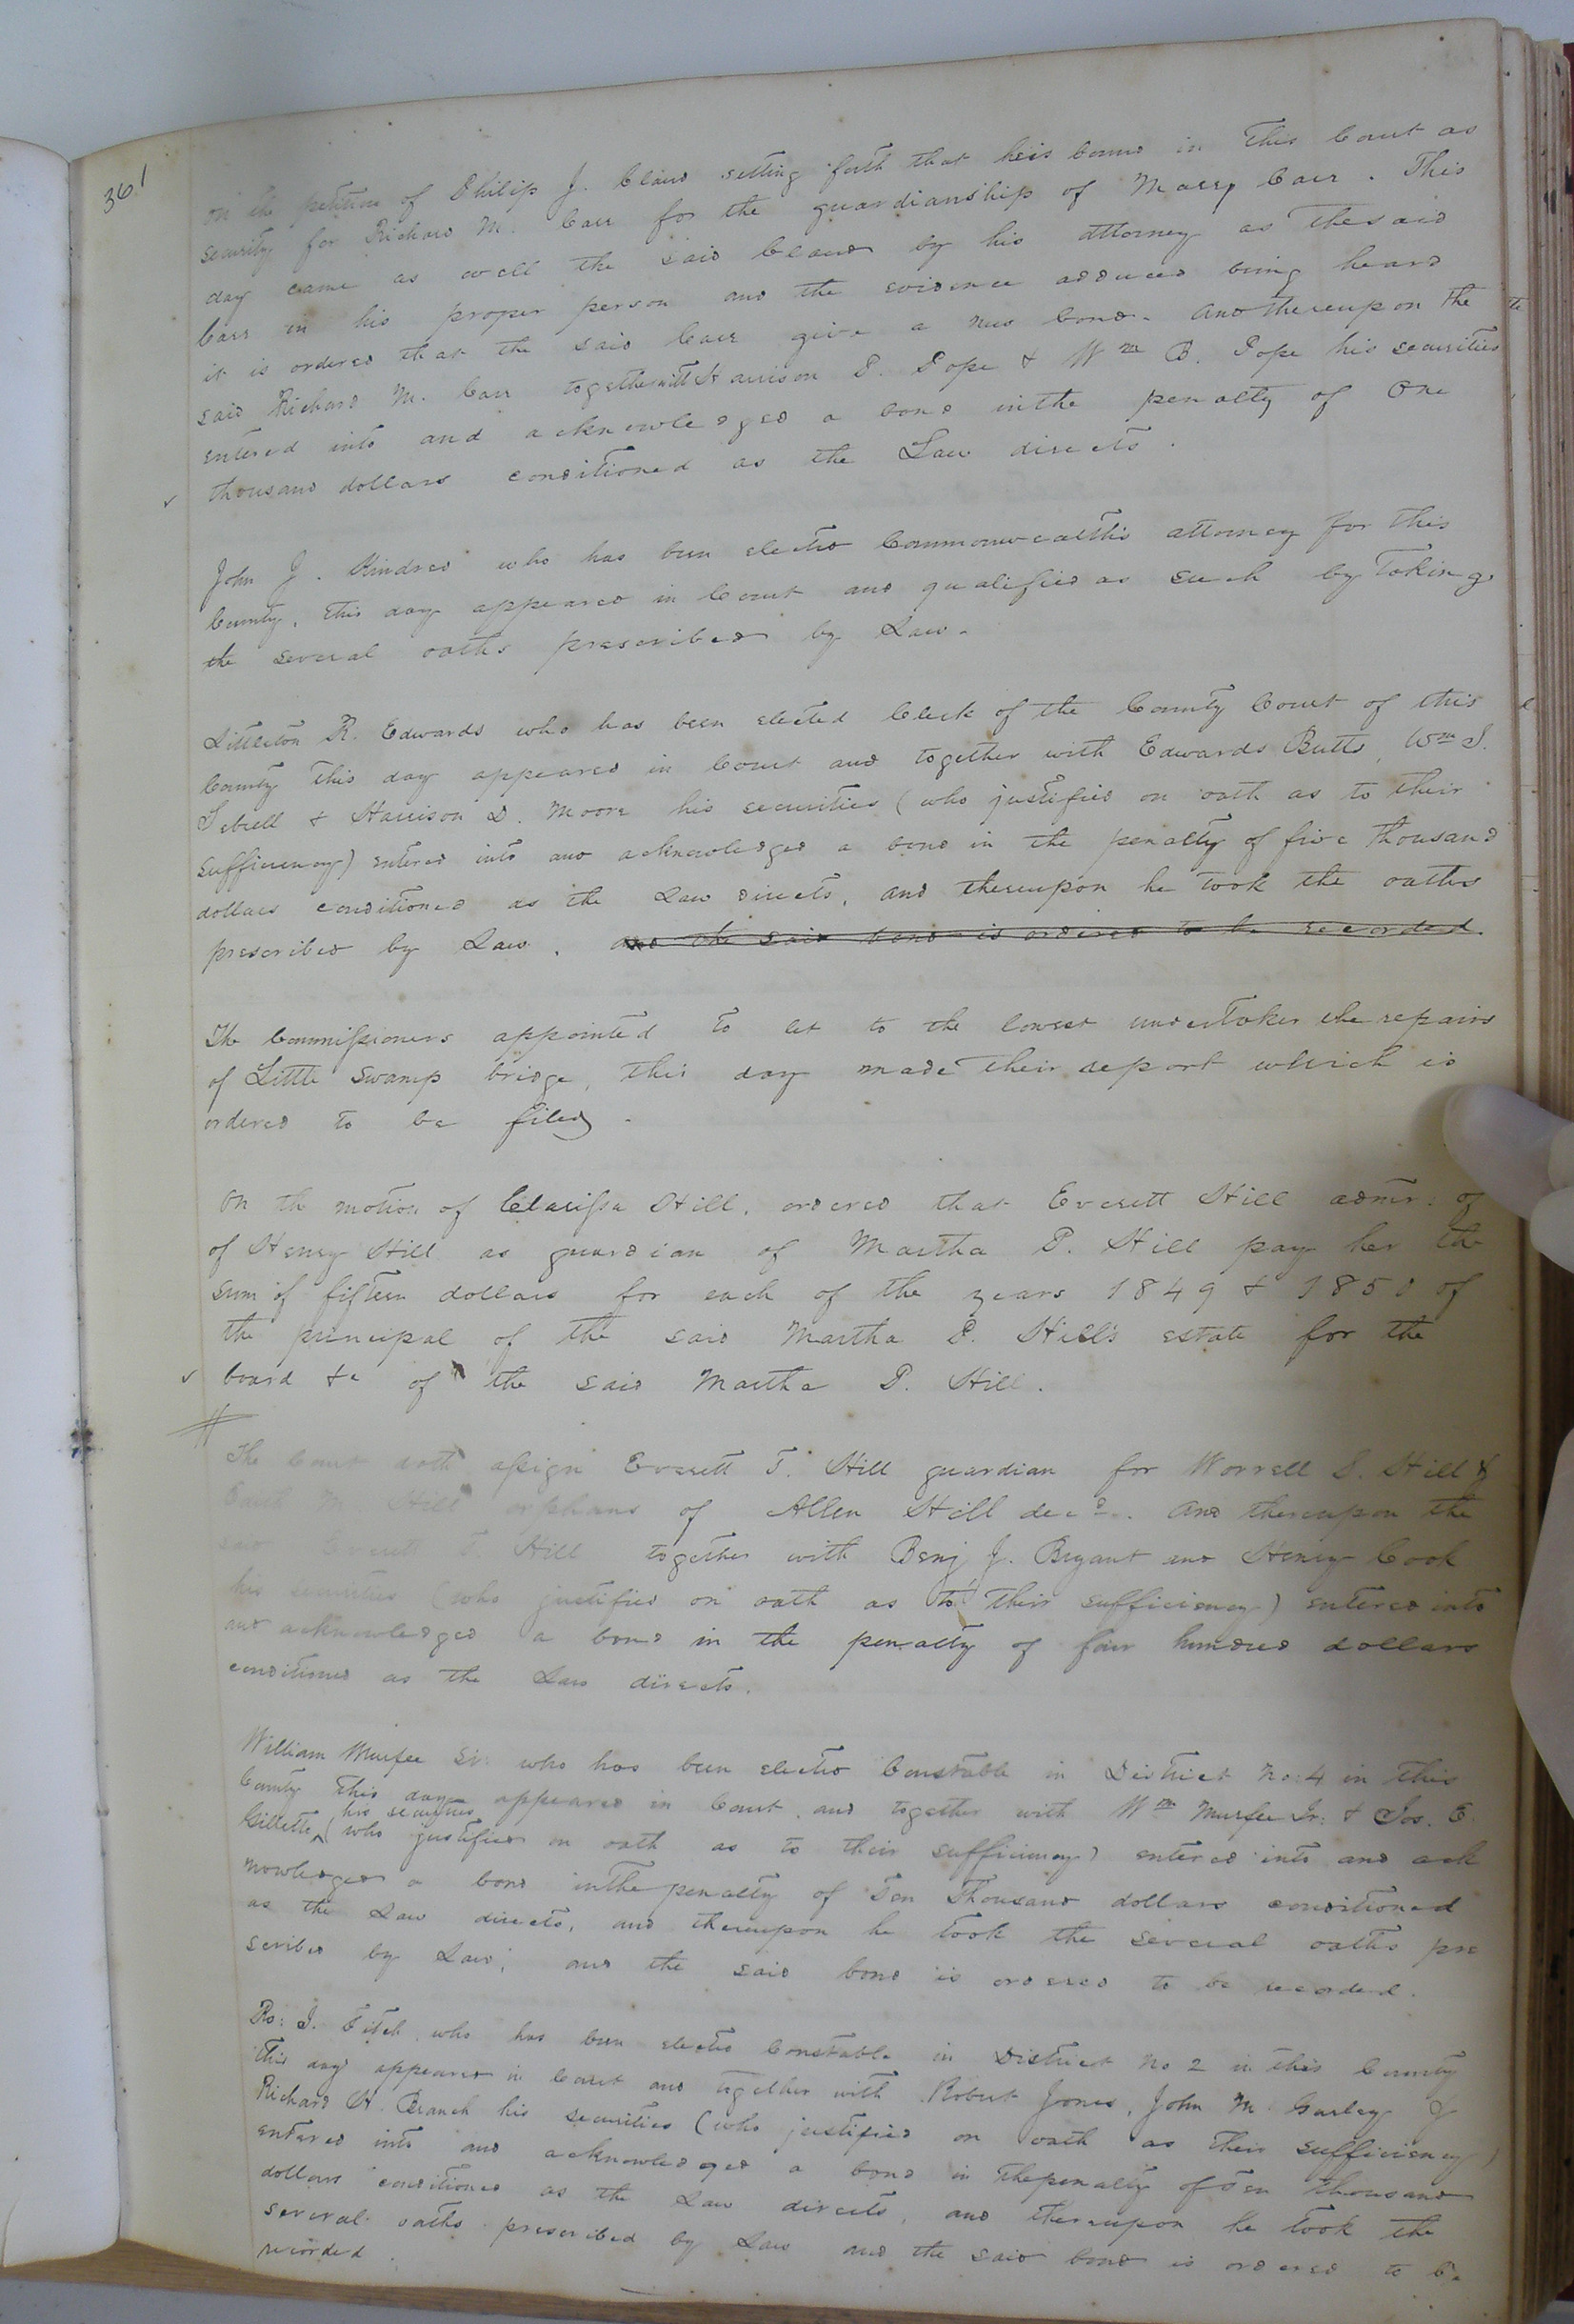 361
on the petition of Philip J. Claud setting forth that he is bound in this Court as
security for Richard M. Carr for the guardianship of Massy Carr. This
day came as well the said Claud by his attorney as the said
Carr in his proper person and the evidence adduced being heard
it is ordered that the said Carr give a new bond. And thereupon the
said Richard M. Carr together with Harrison P. Pope & Wm B. Pope his securities
entered into and acknowledged a bond in the penalty of One
thousand dollars conditioned as the Law directs.
John J. Kindred who has been elected Commonwealth's attorney for this
County, this day appeared in Court and qualified as such by taking
the several oaths prescribed by Law.
Littleton R. Edwards who has been elected Clerk of the County Court of this
County this day appeared in Court and together with Edwards Butts, Wm J.
Sebrell & Harrison D. Moore his securities (who justified on oath as to their
sufficiency) entered into and acknowledged a bond in the penalty of five thousand
dollars conditioned as the Law directs, and thereupon he took the oaths
prescribed by Law. and the said bond is ordered to be recorded.
The Commissioners appointed to let to the lowest undertaker the repairs
of Little Swamp bridge, this day made their report which is
ordered to be filed.
On the motion of Clarissa Hill, ordered that Everett Hill admr. of
of Henry Hill as guardian of Martha P. Hill pay her the
sum of fifteen dollars for each of the years 1849 & 1850 of
the principal of the said Martha P. Hill's estate for the
board &c of the said Martha P. Hill.
The Court doth assign Everett T. Hill guardian for Worrell S. Hill &
M. Hill orphans of Allen Hill decd. And thereupon the
said Everett T. Hill together with Benj J. Bryant and Henry Cook
his securities (who justified on oath as to their sufficiency) entered into
and acknowledged a bond in the penalty of four hundred dollars
conditioned as the Law directs.
William Murfee Sr. who has been elected Constable in District No. 4 in this
County this day appeared in Court, and together with Wm Murfee Jr: & Jos. E.
Gillette, his securities (who justified on oath as to their sufficiency) entered into and ack
nowledged a bond in the penalty of Ten Thousand dollars conditioned
as the Law directs, and thereupon he took the several oaths pre
scribed by Law; and the said bond is ordered to be recorded.
Ro: J. who has been elected Constable in District No 2 in this County
this day appeared in Court and together with Robert Jones, John M. Gurley &
Richard H. Branch his securities (who justified on oath as their sufficiency)
entered into and acknowledged a bond in the penalty of Ten thousand
dollars conditioned as the Law directs, and thereupon he took the
several oaths prescribed by Law and the said bond is ordered to be
recorded.